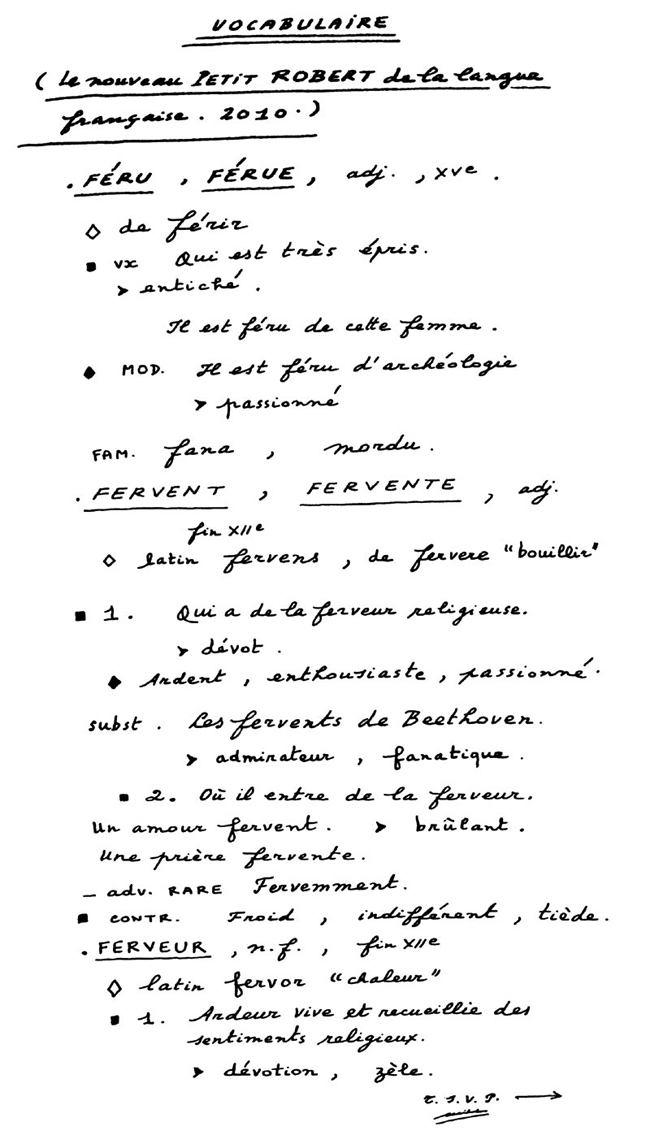 VOCABULAIRE
( Le nouveau PETIT ROBERT de la langue
française . 2010 . )
. FÉRU , FÉRUE , adj. , XVe .
◊ de férir
■ vx Qui est très épris.
➤ entiché .
Il est féru de cette femme .
◆ MOD. Il est féru d'archéologie
➤ passionné
FAM. fana , mordu .
. FERVENT , FERVENTE , adj.
fin XIIe
◊ latin fervens , de fervere "bouillir"
■ 1 . Qui a de la ferveur religieuse.
➤ dévot .
◆ Ardent , enthousiaste , passionné .
subst . Les fervents de Beethoven .
➤ admirateur , fanatique .
■ 2. Où il entre de la ferveur.
Un amour fervent . ➤ brûlant .
Une prière fervente .
_ adv. RARE Fervemment.
■ CONTR. Froid , indifférent , tiède .
. FERVEUR , n.f. , fin XIIe
◊ latin fervor "chaleur"
■ 1. Ardeur vive et recueillie des
sentiments religieux.
➤ dévotion , zèle .
T. S. V. P. →